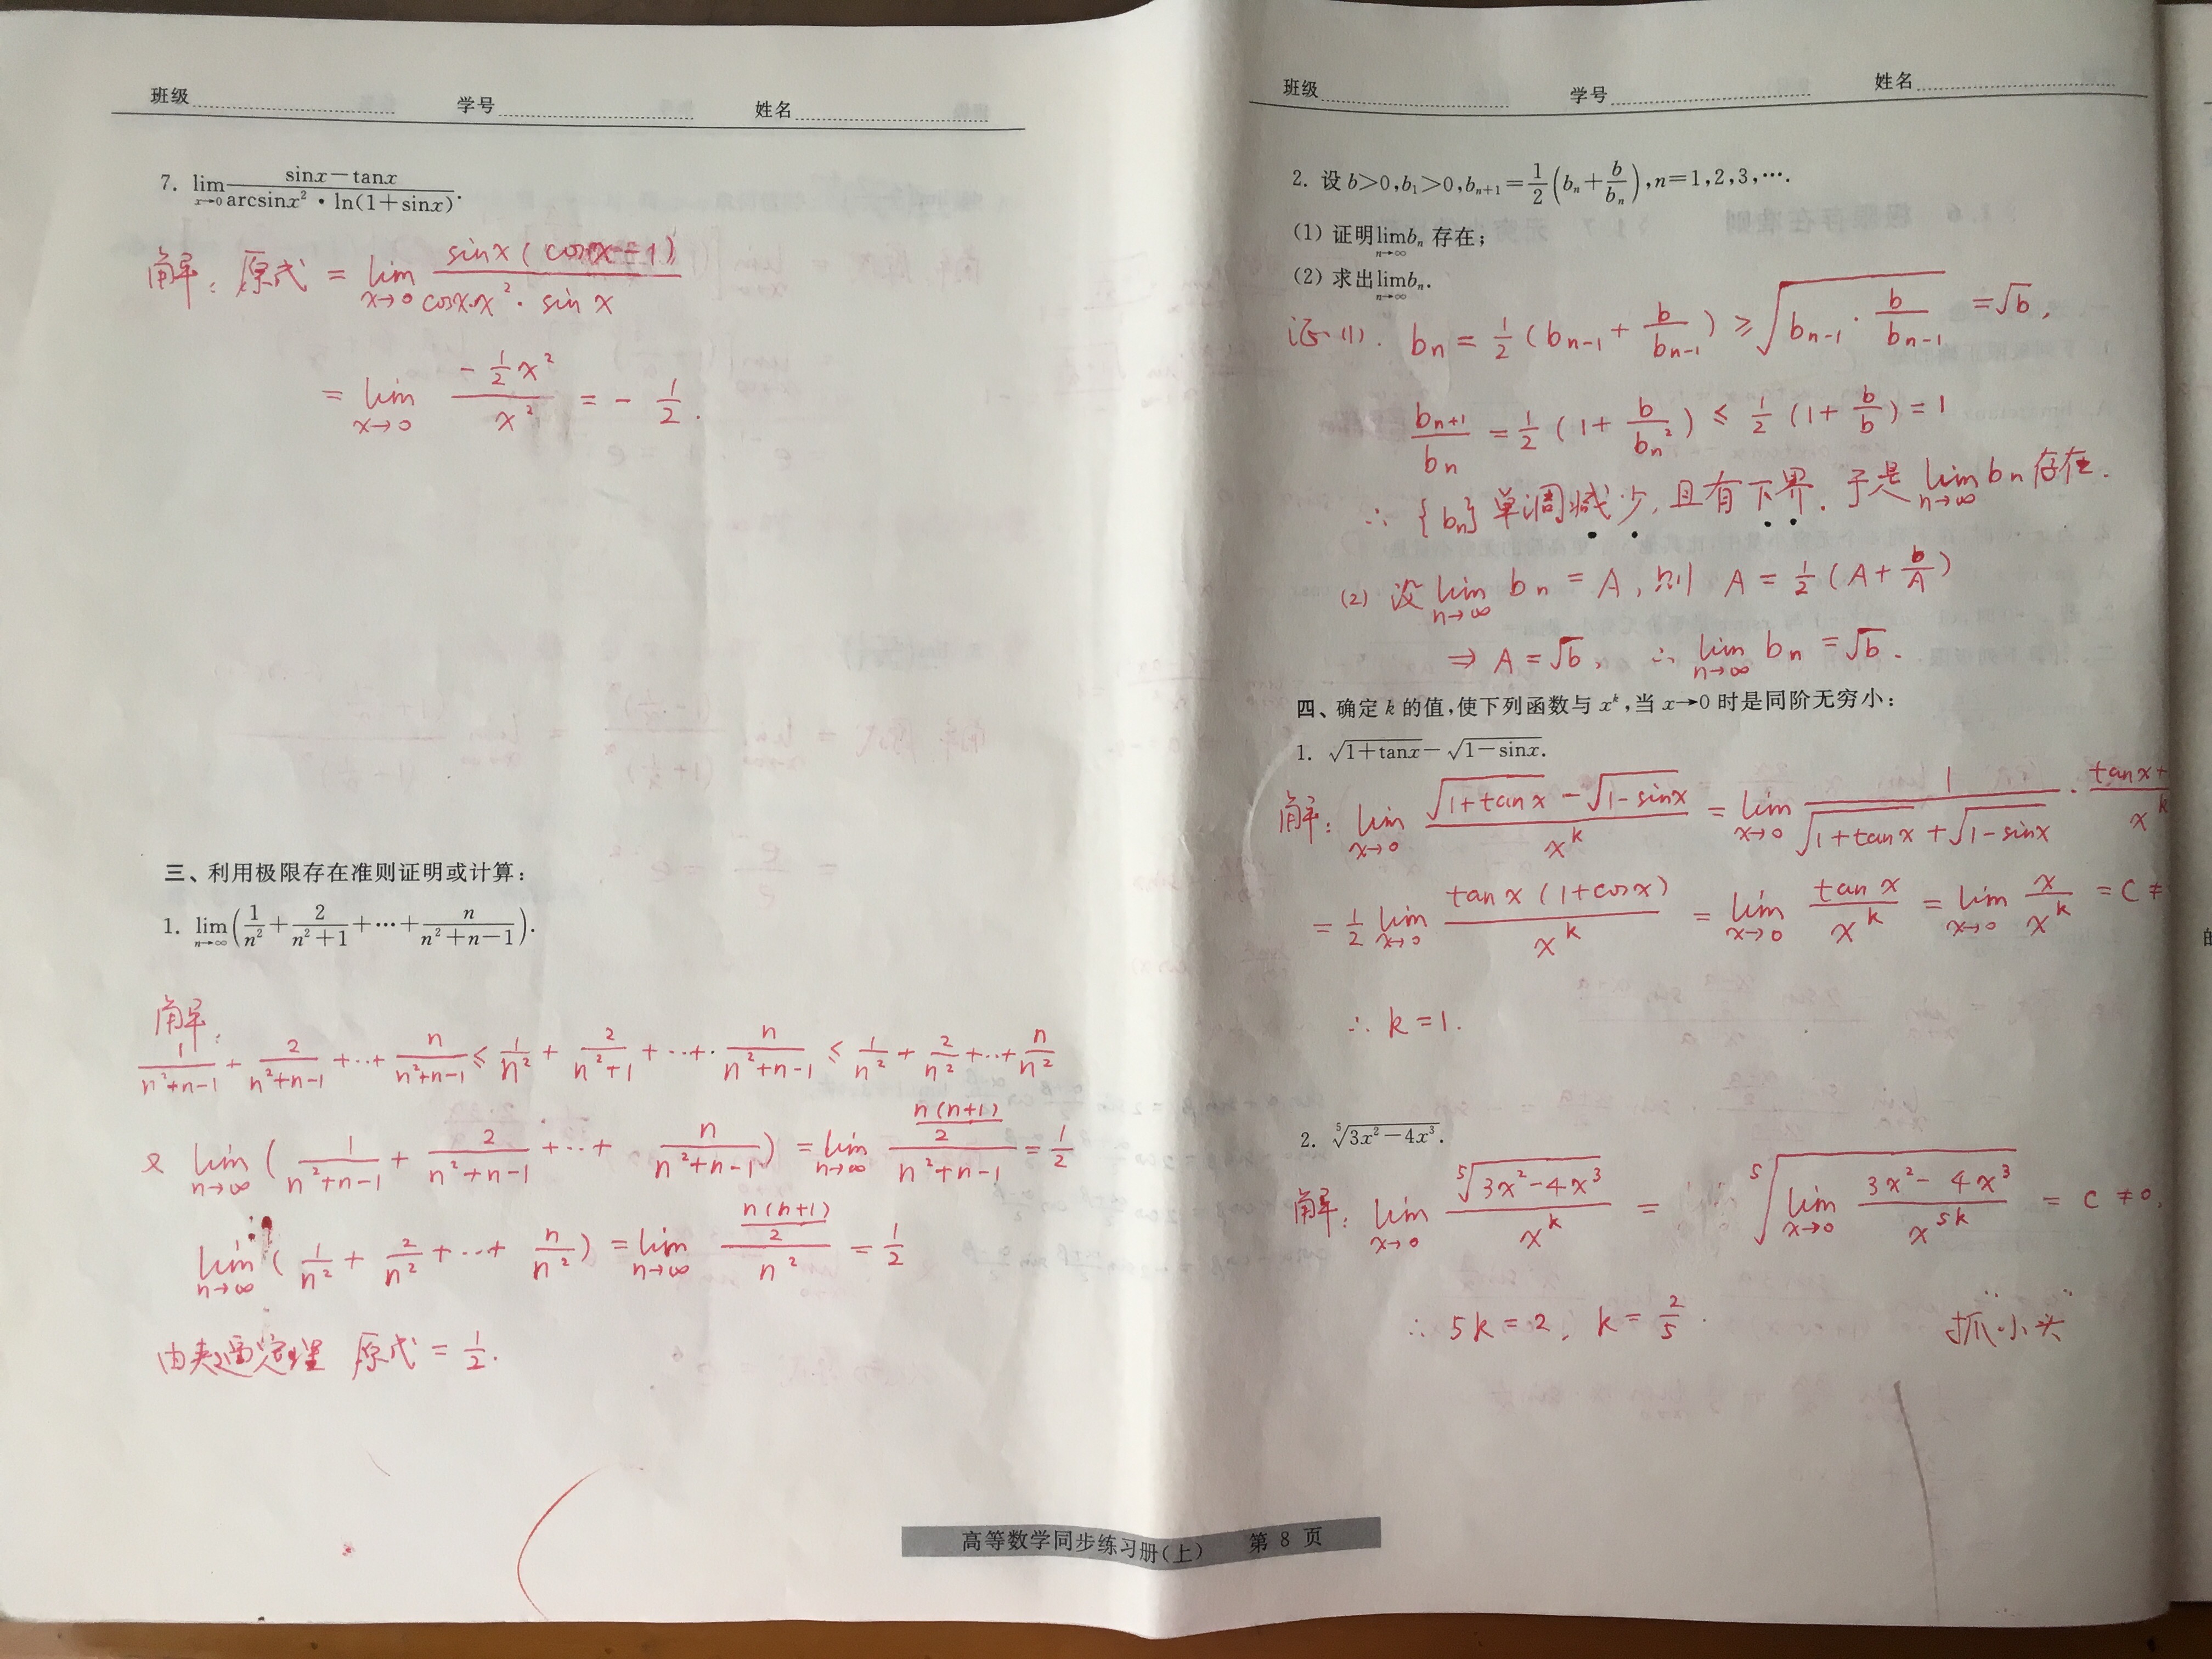 班级 学号 姓名
7. lim_{x→0} (sinx−tanx)/(arcsinx²·ln(1+sinx)).
解: 原式 = lim_{x→0} sinx(cosx−1)/(cosx·x²·sinx)
= lim_{x→0} (−1/2 x²)/x² = −1/2.
三、利用极限存在准则证明或计算:
1. lim_{n→∞}(1/n²+2/(n²+1)+⋯+n/(n²+n−1)).
解:
1/(n²+n−1)+2/(n²+n−1)+⋯+n/(n²+n−1) ≤ 1/n²+2/(n²+1)+⋯+n/(n²+n−1) ≤ 1/n²+2/n²+⋯+n/n²
又 lim_{n→∞}(1/(n²+n−1)+2/(n²+n−1)+⋯+n/(n²+n−1)) = lim_{n→∞} (n(n+1)/2)/(n²+n−1) = 1/2
lim_{n→∞}(1/n²+2/n²+⋯+n/n²) = lim_{n→∞} (n(n+1)/2)/n² = 1/2
由夹逼定理 原式 = 1/2.
班级 学号 姓名
2. 设 b>0,b₁>0,bₙ₊₁=1/2(bₙ+b/bₙ),n=1,2,3,⋯.
(1) 证明 lim_{n→∞}bₙ 存在;
(2) 求出 lim_{n→∞}bₙ.
证(1). bₙ = 1/2(bₙ₋₁+b/bₙ₋₁) ≥ √(bₙ₋₁·b/bₙ₋₁) = √b,
bₙ₊₁/bₙ = 1/2(1+b/bₙ²) ≤ 1/2(1+b/b) = 1
∴ {bₙ}单调减少,且有下界. 于是 lim_{n→∞} bₙ 存在.
(2) 设 lim_{n→∞} bₙ = A, 则 A = 1/2(A+b/A)
⇒ A = √b, ∴ lim_{n→∞} bₙ = √b.
四、确定 k 的值,使下列函数与 xᵏ,当 x→0 时是同阶无穷小:
1. √(1+tanx)−√(1−sinx).
解: lim_{x→0} (√(1+tanx)−√(1−sinx))/xᵏ = lim_{x→0} 1/(√(1+tanx)+√(1−sinx)) · (tanx+)/xᵏ
= 1/2 lim_{x→0} tanx(1+cosx)/xᵏ = lim_{x→0} tanx/xᵏ = lim_{x→0} x/xᵏ = C ≠
∴ k=1.
2. ⁵√(3x²−4x³).
解: lim_{x→0} ⁵√(3x²−4x³)/xᵏ = ⁵√(lim_{x→0} (3x²−4x³)/x⁵ᵏ) = C ≠0,
∴ 5k=2, k=2/5.
抓小头
高等数学同步练习册(上) 第 8 页